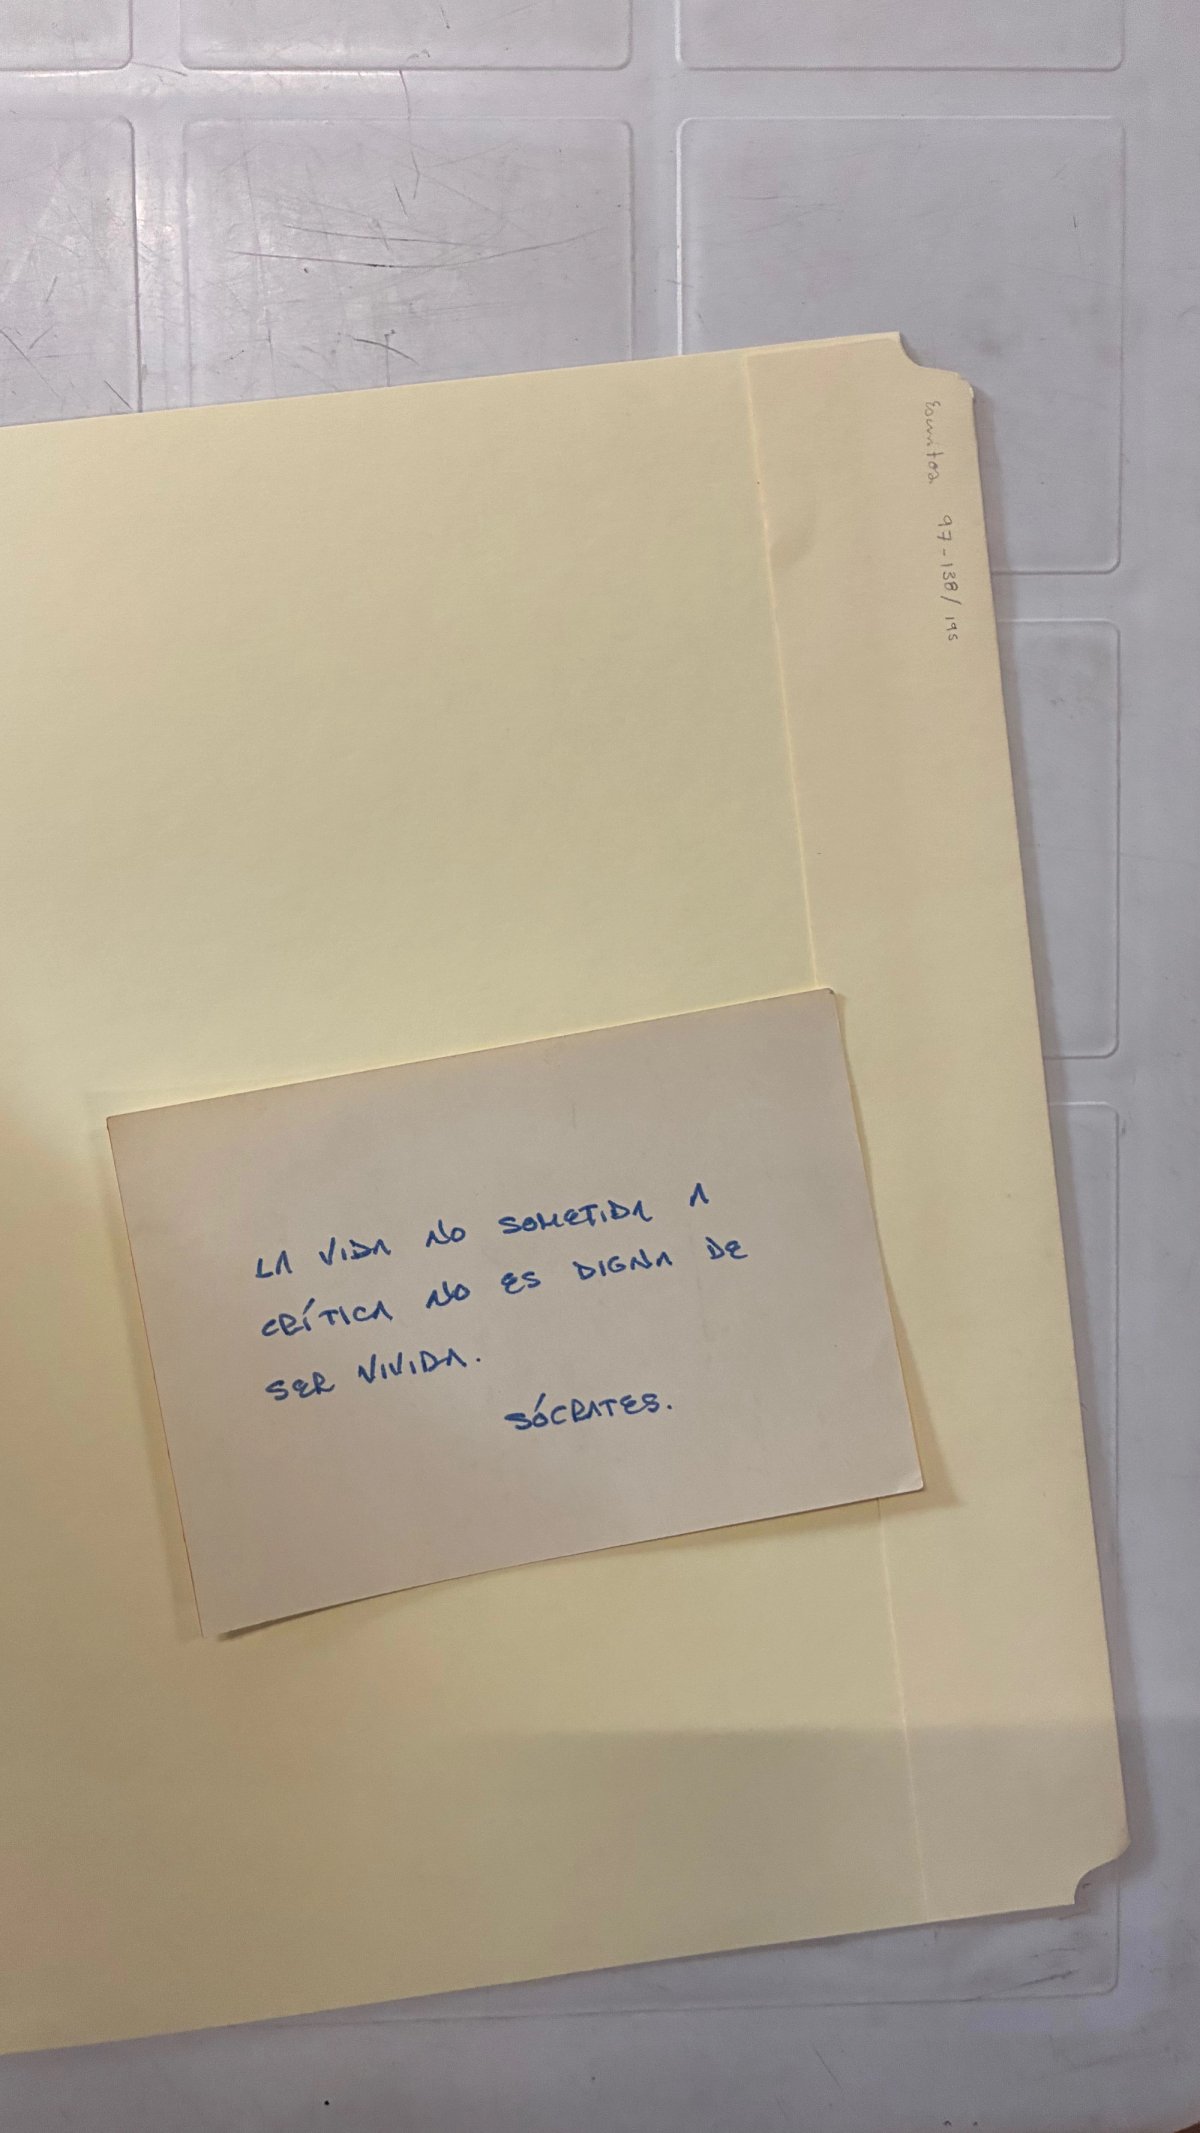 Escritos 97-138/195
LA VIDA NO SOMETIDA A
CRÍTICA NO ES DIGNA DE
SER VIVIDA.
SÓCRATES.